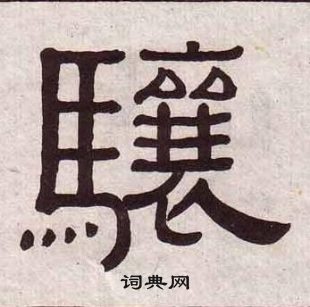 驤
词典网